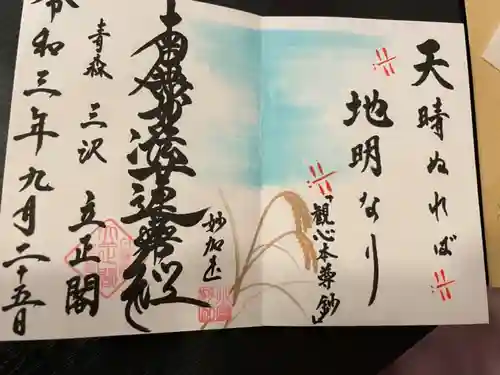 天晴ぬれば
地明なり
『観心本尊鈔』
南無妙法蓮華経
妙加速
青森 三沢 立正閣
令和三年九月二十五日